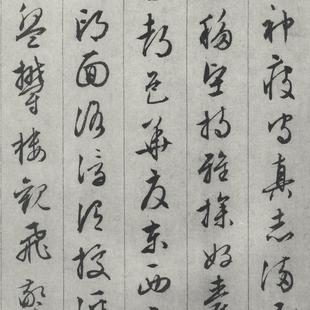 神疲守真志滿
移堅持雅操好爵
都邑華夏東西
邙面洛浮渭據涇
盤鬱樓觀飛驚